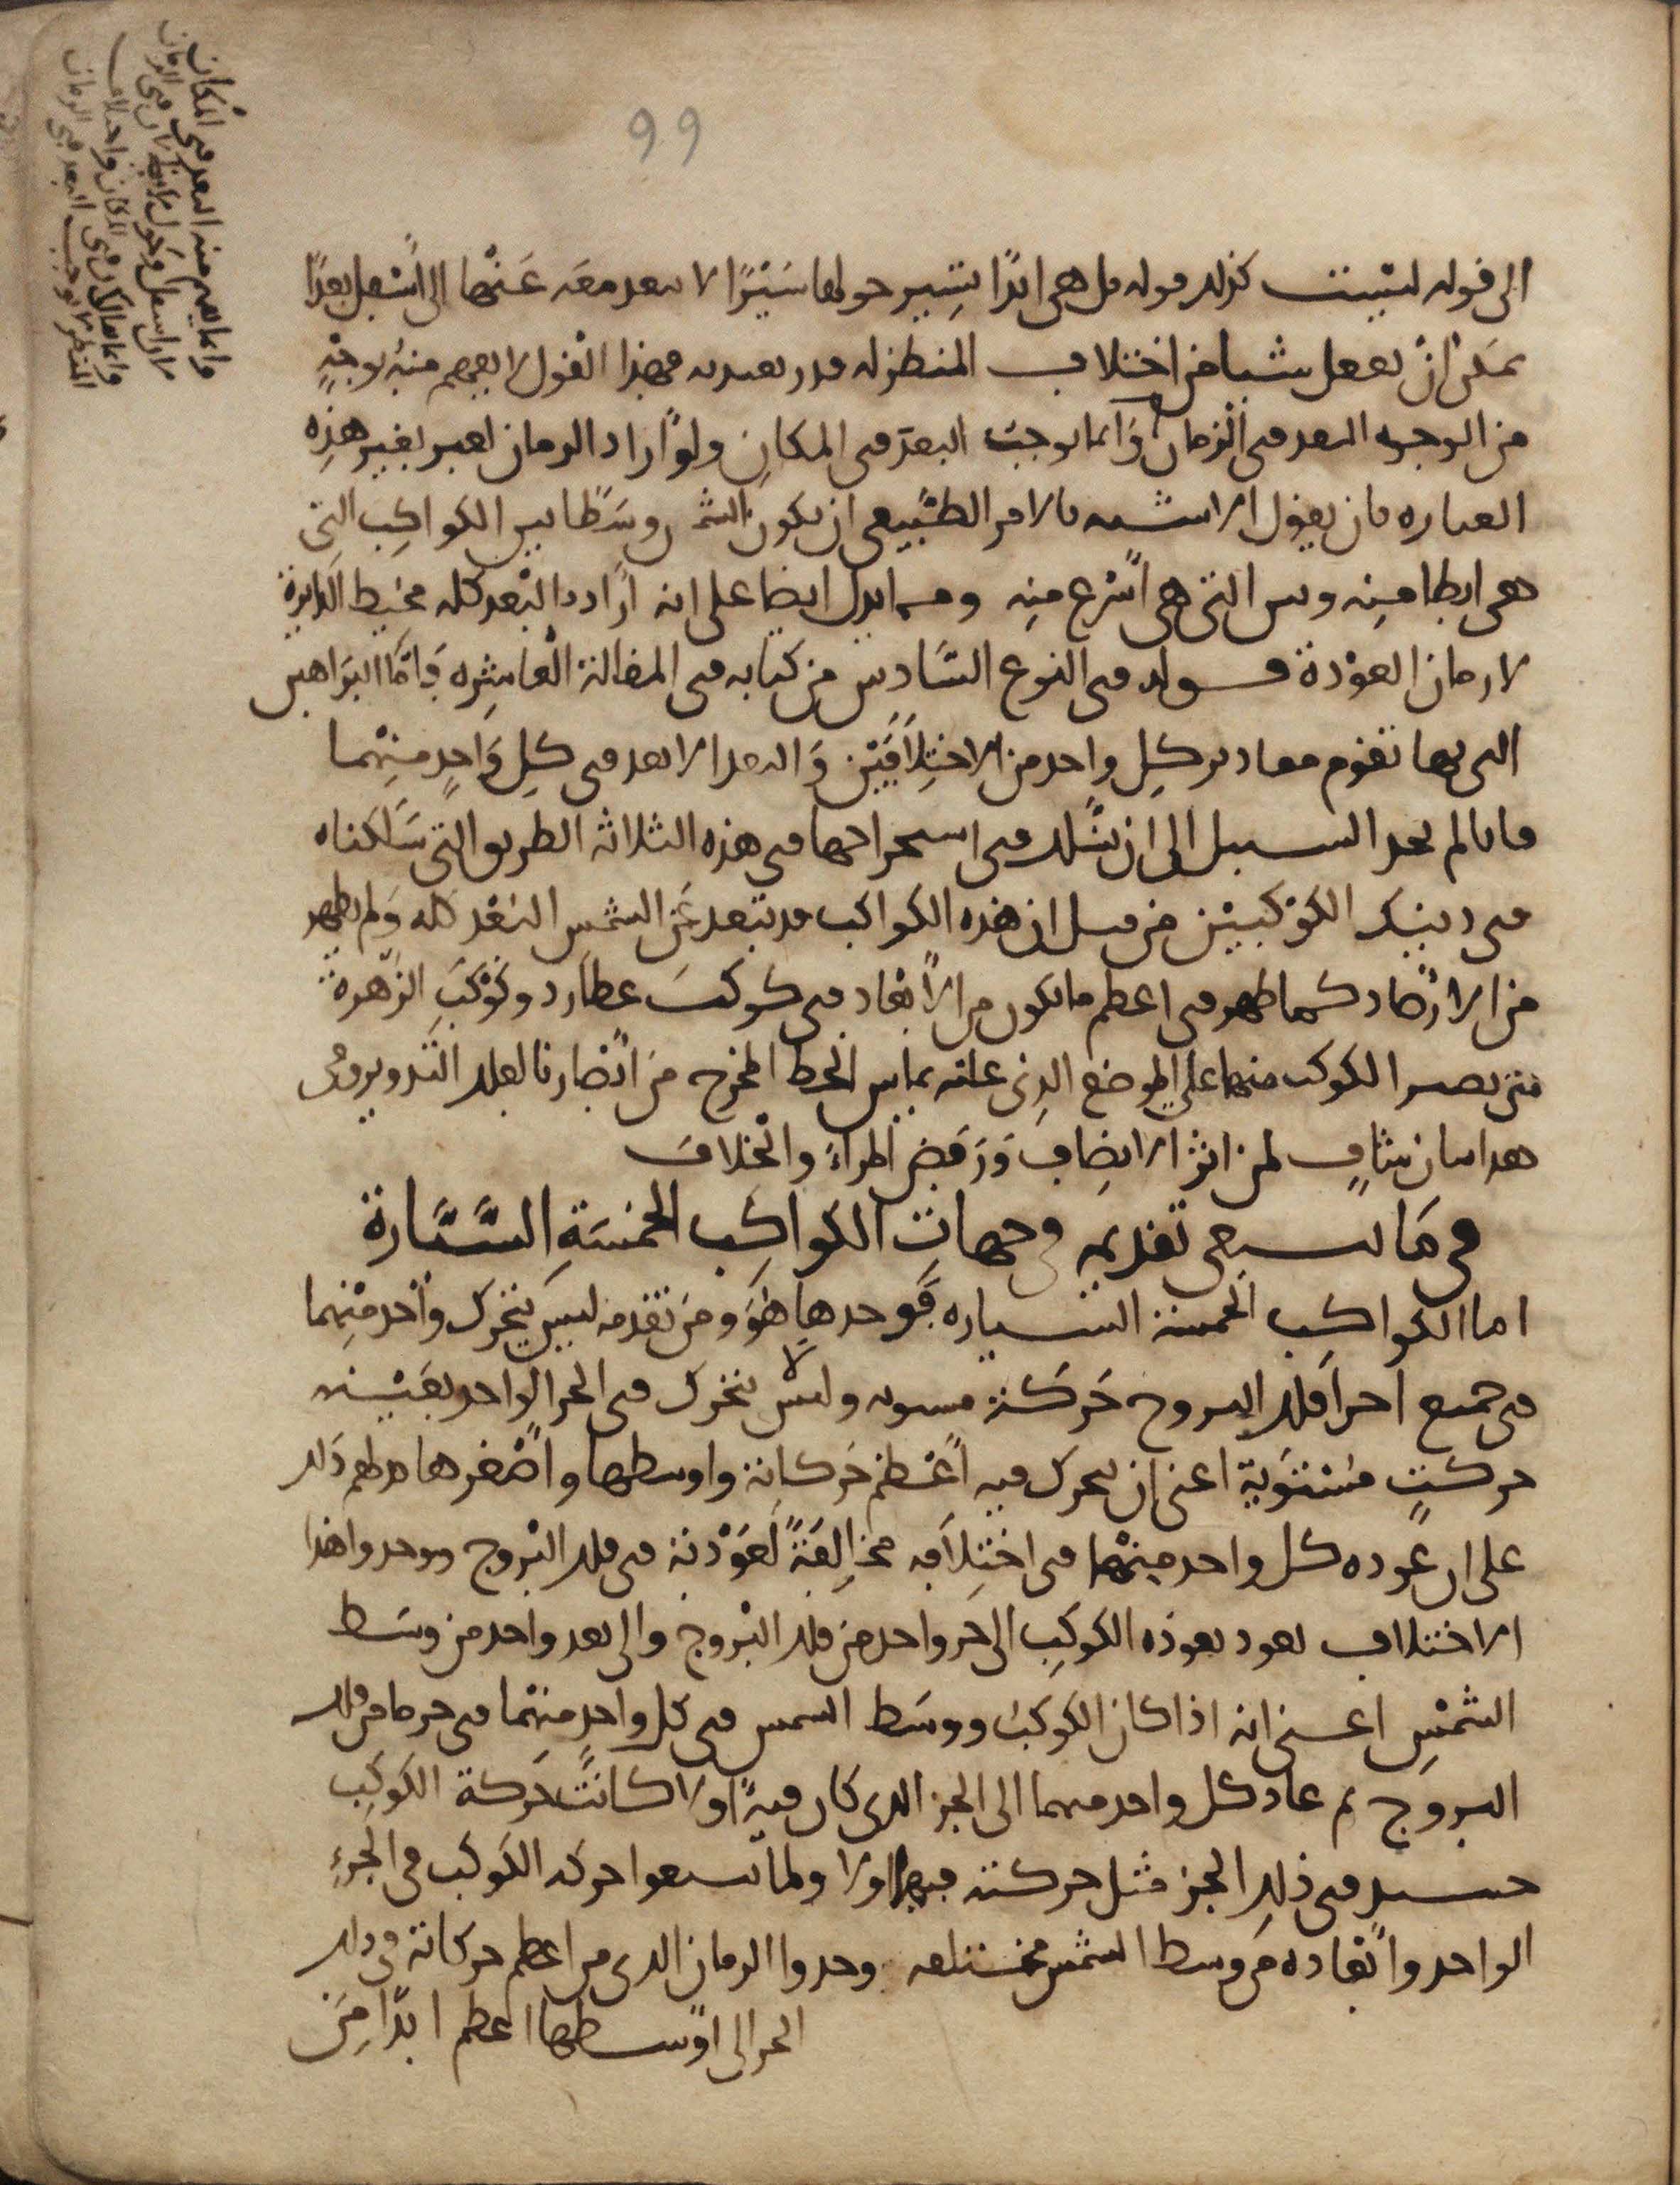 99
الى قوله ليست كذلك قوله بل هي ابدًا تسير حولها سَيْرًا لا تبعد معه عَنْها الى أسفل بعدًا
يمكن انْ يفعل شيا من اختلاف المنظر له قدر يعتد به فهذا القول لا يفهم منه بوجْهٍ
من الوجوه البعد في الزمان وانما يوجب البعد في المكان ولوْ اراد الزمان لعبر بغير هذِه
العباره فان يقول الاشبه بالامر الطبيعي ان يكون الشمس وسَطًا بين الكواكِب التي
هي ابطا منه وبين التي هي أسْرع منه ومما يدل ايضا على انه أراد بالبُعد كله محيط الدايرة
لا زمان العوْدة قوله في النوع السَّادس من كتابه في المقالة العاشره فَامّا البَراهين
التي بها تقوم مقادير كل واحد من الاختِلاَفَيْن وَالبعد الابعد في كلِ وَاحِدٍ منهما
فانا لم نجد السبيل الى ان نسْلك في استخراجها في هذه الثلاثة الطريق التي سَلكناه
في ذينك الكوْكبيْن من قبل ان هذه الكواكب قد تبعد عَن الشمس البُعْد كله وَلم يظهر
من الارْصاد كما ظهر في اعظم ما يكون من الأبْعاد في كوكب عطارد وكَوْكبَ الزهرة
متى يصير الكوكب منهما على الموضع الذي عليه يماس الخط المخرج من ابْصارنا لفلك التدوير وفى
هذا بيان شافٍ لمن اثر الانصاف وَرَفض المراءَ والخلافَ
في مَا ينبغي تقديمه في جهاتِ الكواكِب الخمسَةِ السَّيَّارة
اما الكواكب الخمسة السياره فوجدها هوَ ومن تقدمه ليس يتحرك واحد منهما
في جميع اجزا فلك البروج حَركة مستويه ولا ليس يتحرك في الجزا الواحد بعَيْنه
حركتٍ مسْتوية اعنى ان يتحرك فيه أعْظم حَركاتة واوسطها وأصْغرها فدلهم ذلك
على ان عوده كل واحد منهما في اختِلاَفه مخالِفةً لعَوْدته في فلك البُروج ووجدوا هذا
الاختلاف يعود بعوده الكوكب الى جزو احد من فلك البُروج والى بعد واحد من وسَط
الشمْس اعنى انه اذا كان الكوكبُ ووسَط الشمس في كل واحدٍ منهما في جزء ما من فلك
البروج ثم عاد كل واحد منهما الى الجز الذي كان فيه أولا كانَتْ حَركة الكوكِب
حينيد في ذلك الجز مثل حركته فيهما اولا ولما تتبعوا حركه الكوكب في الجزءِ
الواحد وابْعاده من وسط الشمس مختلفه وجدوا الزمان الذي من اعظم حركاته في ذلك
الجز الى أوْسطها اعظم ابدًا مِن